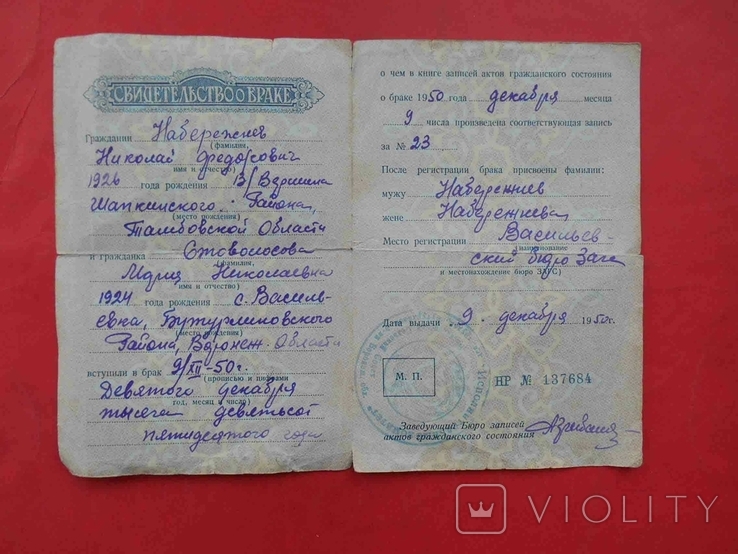 СВИДЕТЕЛЬСТВО О БРАКЕ
Гражданин Набережнев
(фамилия,
Николай Федорович
имя и отчество)
1926 года рождения
Шапкинского Района,
(место рождения)
Тамбовской Области
и гражданка Стоволосова
(фамилия,
Мария Николаевна
имя и отчество)
1924 года рождения с. Василь-
евка, Бутурлиновского
(место рождения)
Района, Воронеж. Области
вступили в брак 9/XII-50г.
(прописью и цифрами
Девятого декабря
год, месяц и число)
тысяча девятьсот
пятидесятого года
о чем в книге записей актов гражданского состояния
о браке 1950 года декабря месяца
9 числа произведена соответствующая запись
за № 23
После регистрации брака присвоены фамилии:
мужу Набережнев
жене Набережнева
Место регистрации Васильев-
(наименование
ский бюро Загс
и местонахождение бюро ЗАГС)
Дата выдачи „9„ декабря 1950г.
М. П.
НР № 137684
Заведующий Бюро записей
актов гражданского состояния
VIOLITY